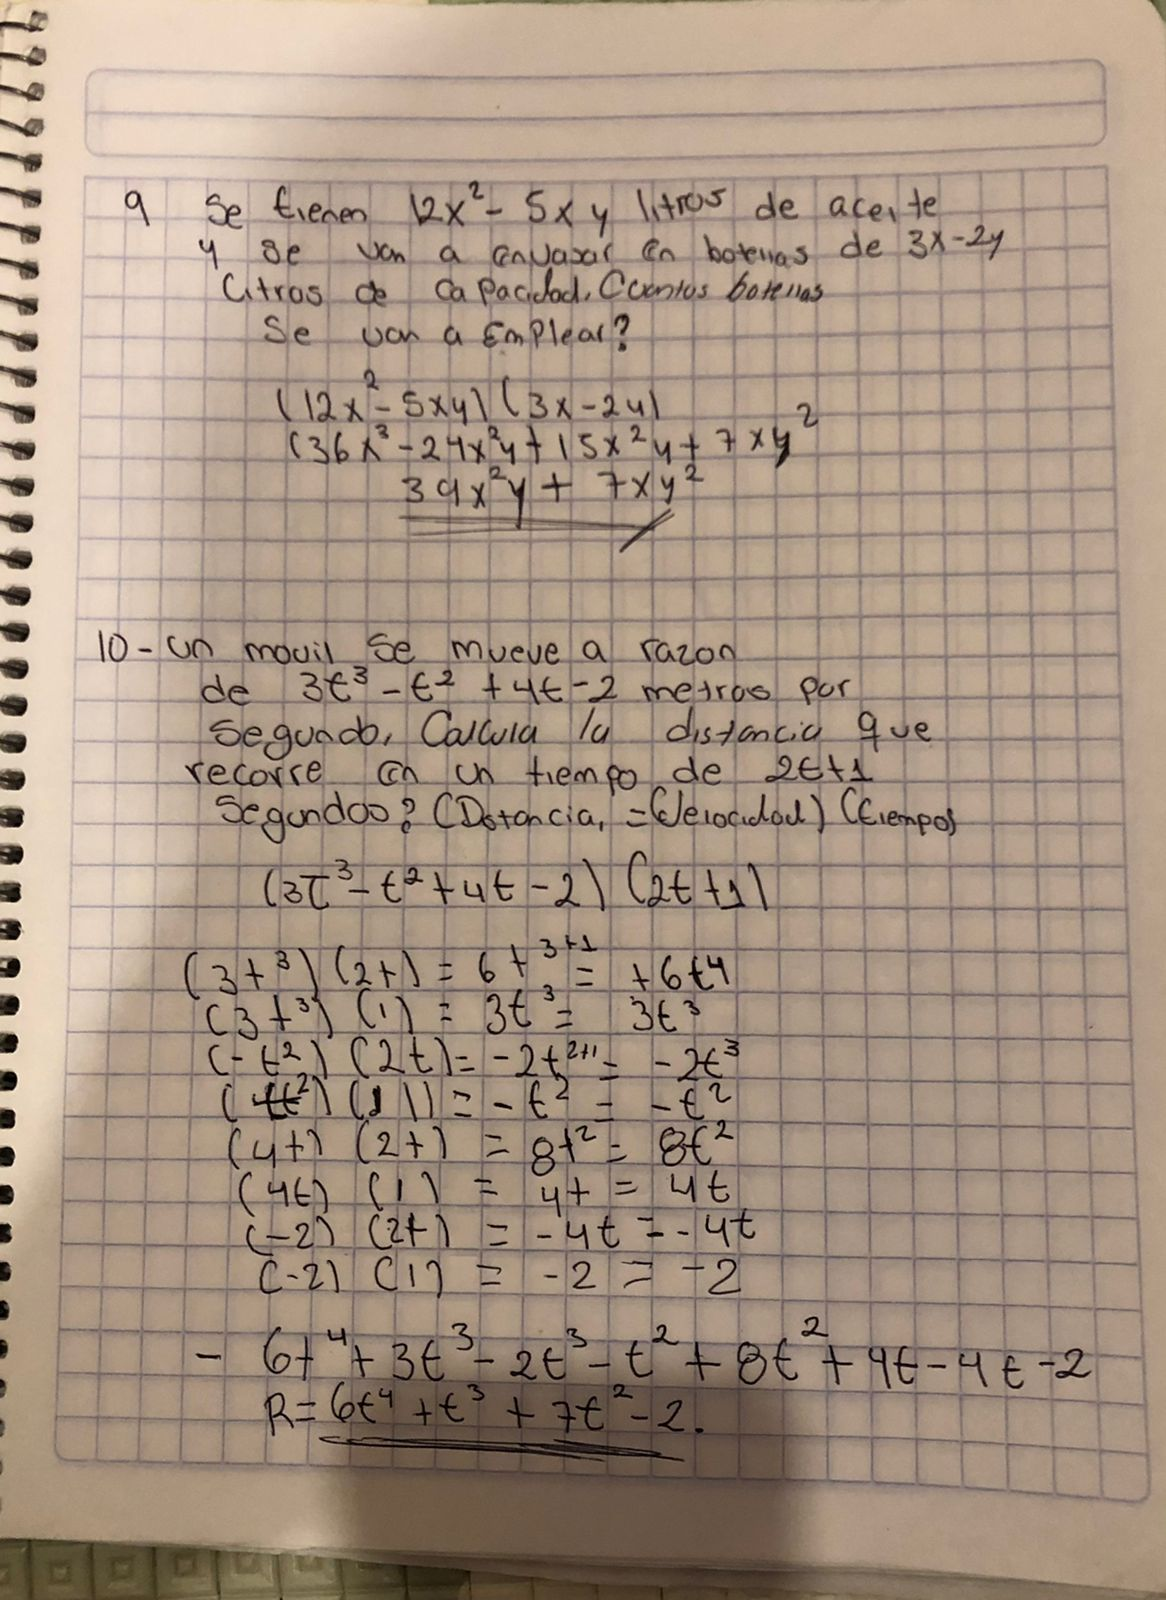 9 Se tienen 12x² - 5xy litros de aceite
y se van a envasar en botellas de 3x-2y
Litros de capacidad, Cuantas botellas
Se van a Emplear?
(12x² - 5xy) (3x - 2y)
(36x³ - 24x²y + 15x²y + 7xy²
39x²y + 7xy²
10 - un movil se mueve a razon
de 3t³ - t² + 4t - 2 metros por
Segundo, Calcula la distancia que
recorre en un tiempo de 2t+1
Segundos? (Distancia, = (Velocidad) (tiempo)
(3t³ - t² + 4t - 2) (2t + 1)
(3t³) (2t) = 6t³⁺¹ = +6t⁴
(3t³) (1) = 3t³ = 3t³
(-t²) (2t) = -2t²⁺¹ = -2t³
(t²) (1) = -t² = -t²
(4t) (2t) = 8t² = 8t²
(4t) (1) = 4t = 4t
(-2) (2t) = -4t = -4t
(-2) (1) = -2 = -2
- 6t⁴ + 3t³ - 2t³ - t² + 8t² + 4t - 4t - 2
R = 6t⁴ + t³ + 7t² - 2.